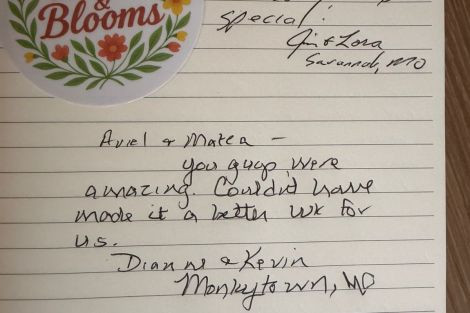 & Blooms
special!
Jim & Lora
Savannah, MO
Ariel & Matea –
you guys were
amazing. Couldn't have
made it a better wk for
us.
Dianne & Kevin
Monkytown, MD